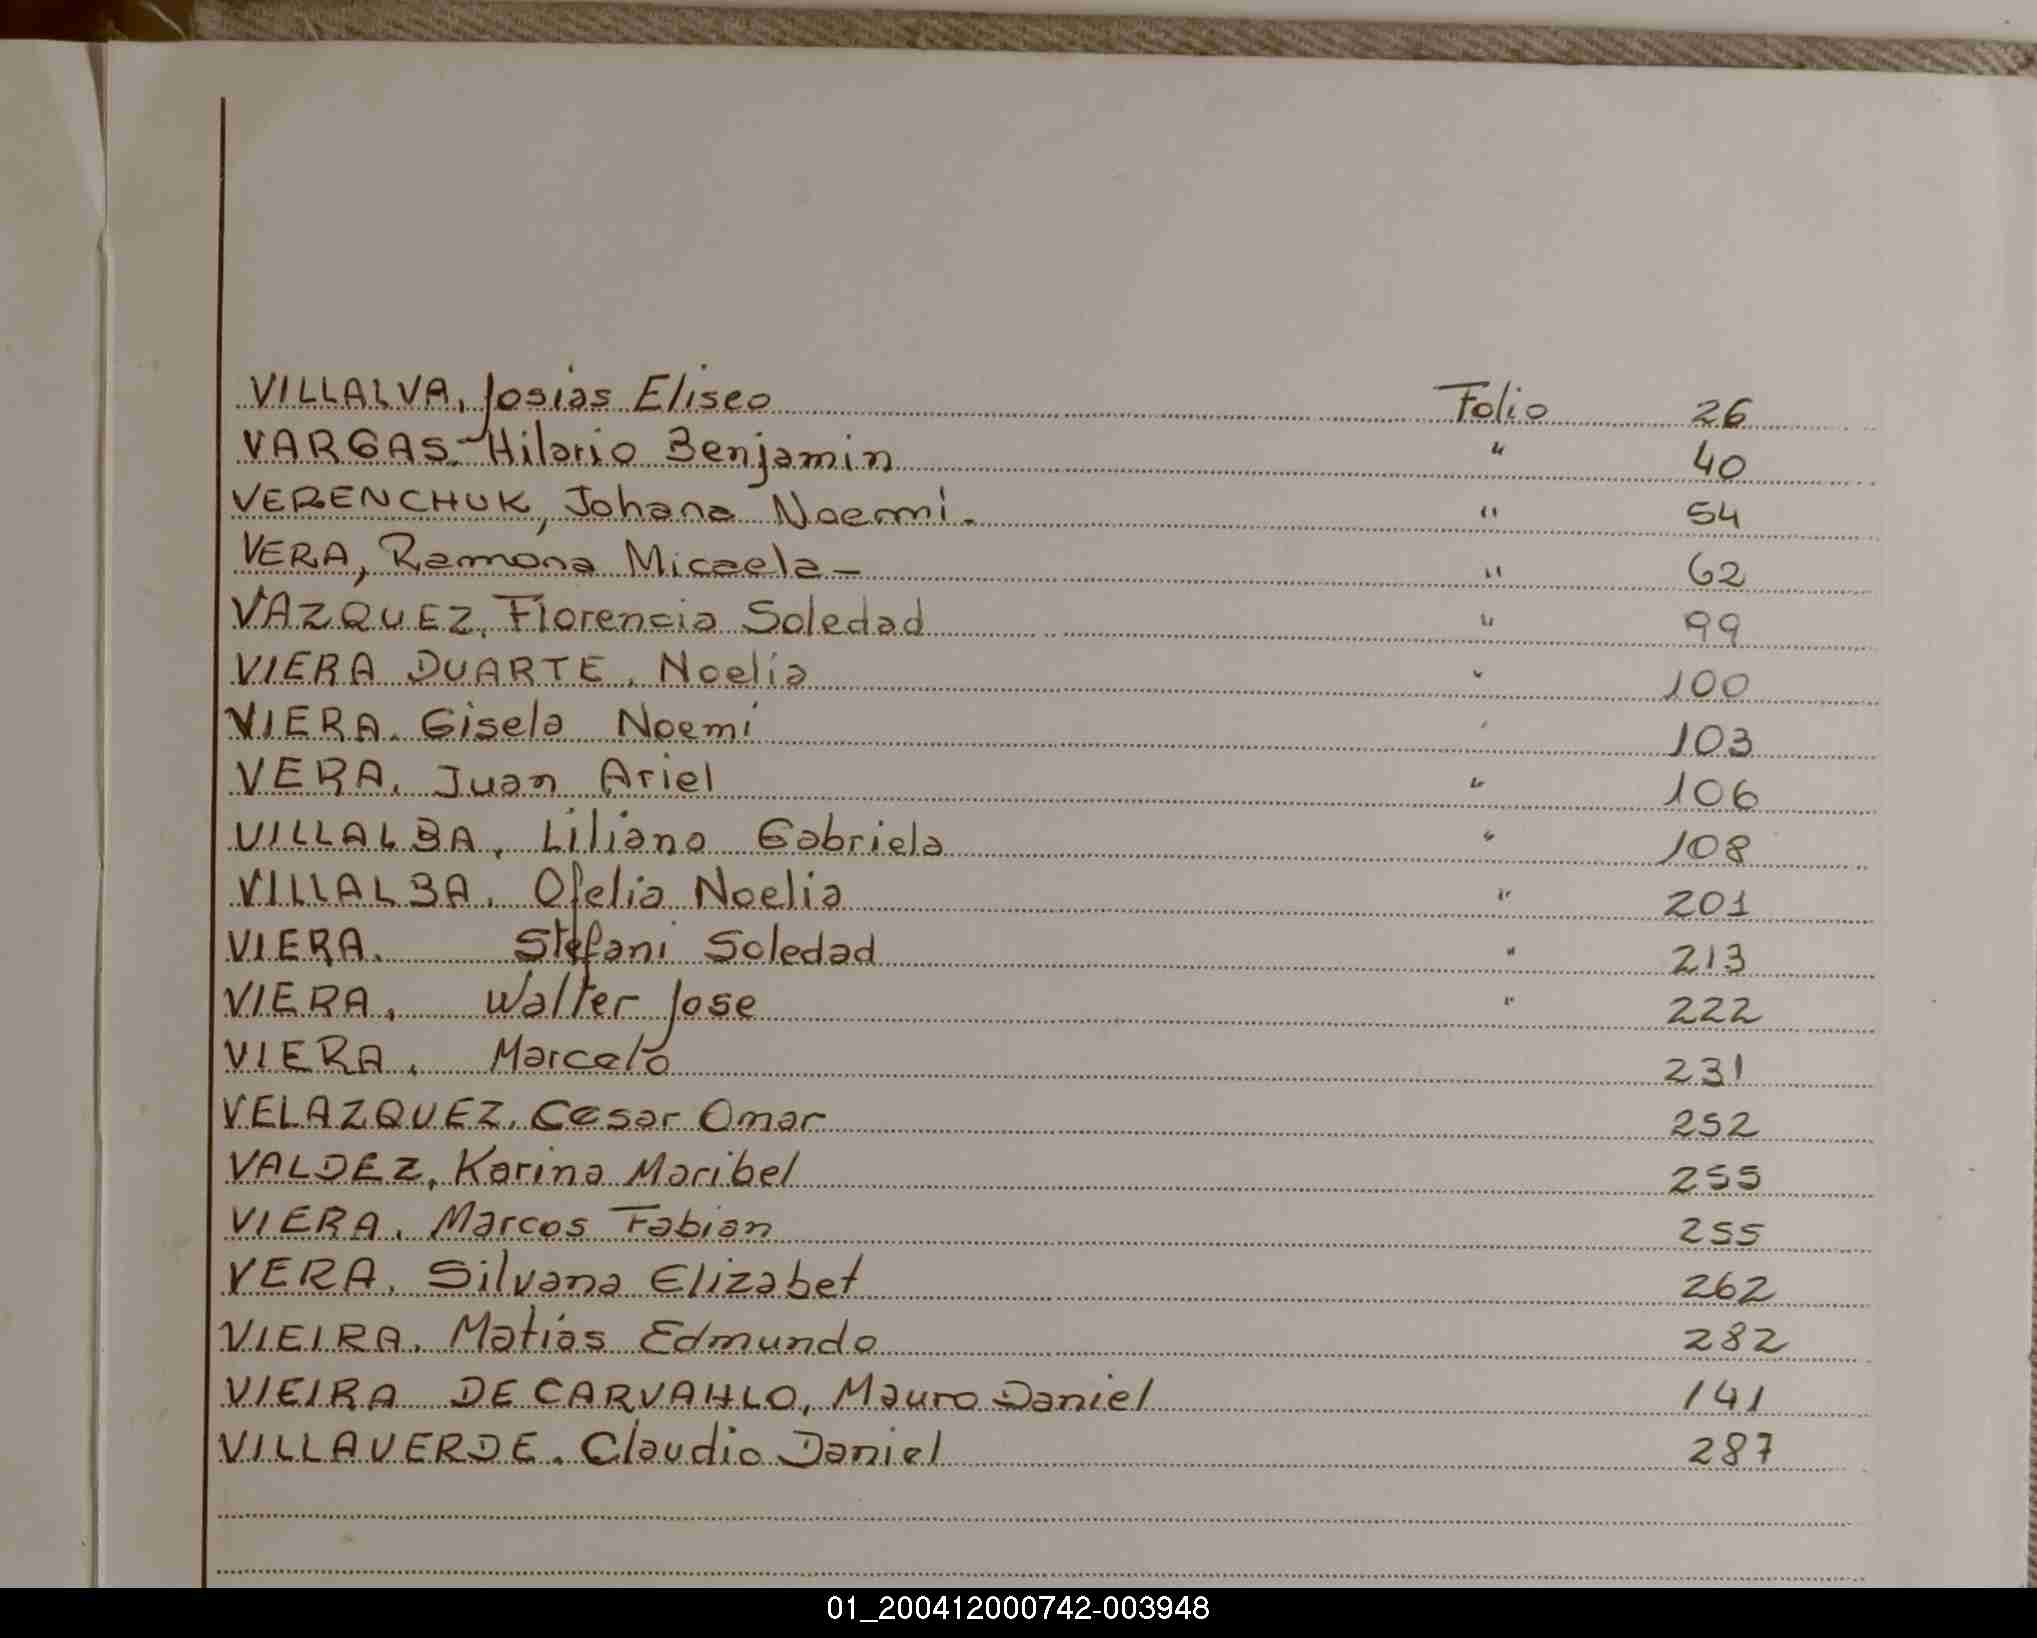 VILLALVA, Josias Eliseo Folio 26
VARGAS - Hilario Benjamin " 40
VERENCHUK, Johana Noemi. " 54
VERA, Ramona Micaela - " 62
VAZQUEZ, Florencia Soledad " 99
VIERA DUARTE, Noelia " 100
VIERA, Gisela Noemi " 103
VERA, Juan Ariel " 106
VILLALBA, Liliana Gabriela " 108
VILLALBA, Ofelia Noelia " 201
VIERA, Stefani Soledad " 213
VIERA, Walter Jose " 222
VIERA, Marcelo 231
VELAZQUEZ, Cesar Omar 252
VALDEZ, Karina Maribel 255
VIERA, Marcos Fabian 255
VERA, Silvana Elizabet 262
VIEIRA, Matias Edmundo 282
VIEIRA DE CARVAHLO, Mauro Daniel 141
VILLAVERDE, Claudio Daniel 287
01_200412000742-003948